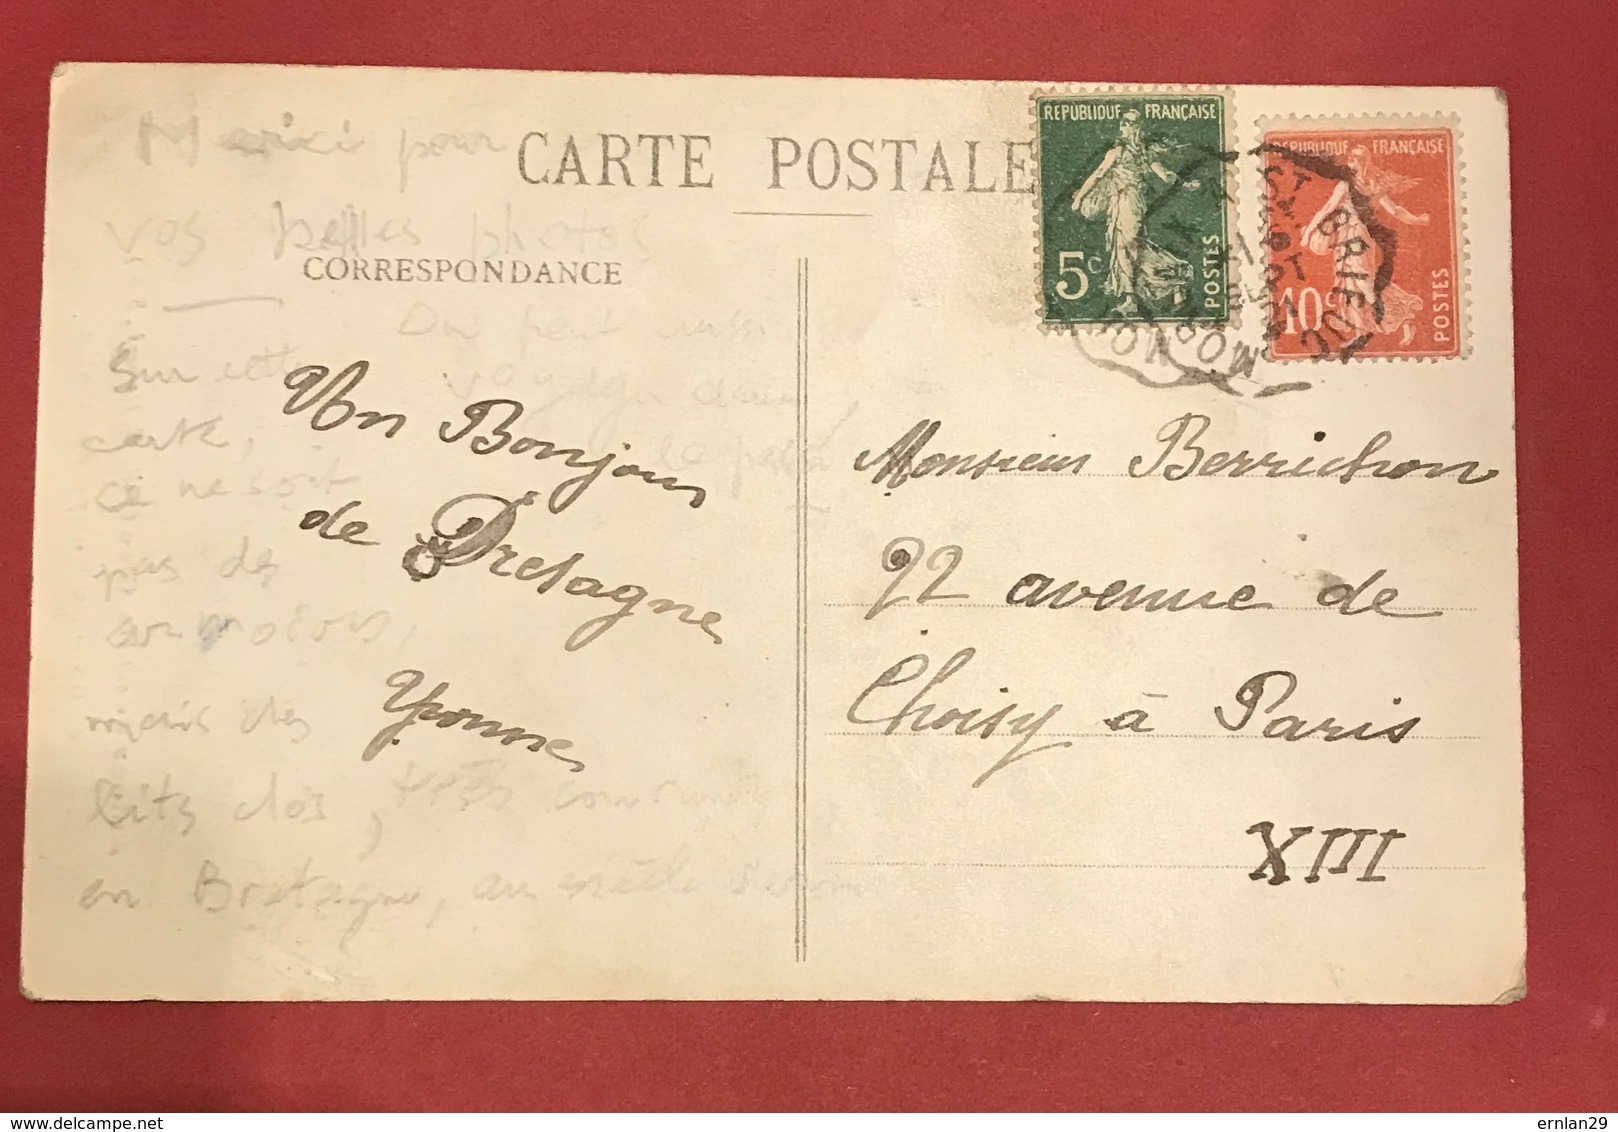 CARTE POSTALE
CORRESPONDANCE
REPUBLIQUE FRANÇAISE
5c
POSTES
REPUBLIQUE FRANÇAISE
10c
POSTES
ST BRIEUC
Merci pour
vos belles photos
On peut
Sur cette
carte,
ce ne sont
pas des
mais des
lits clos, très
en Bretagne, au siècle
Un Bonjour
de Bretagne
Yvonne
Monsieur Berrichon
22 avenue de
Choisy à Paris
XIII
delcampe.net
ernlan29